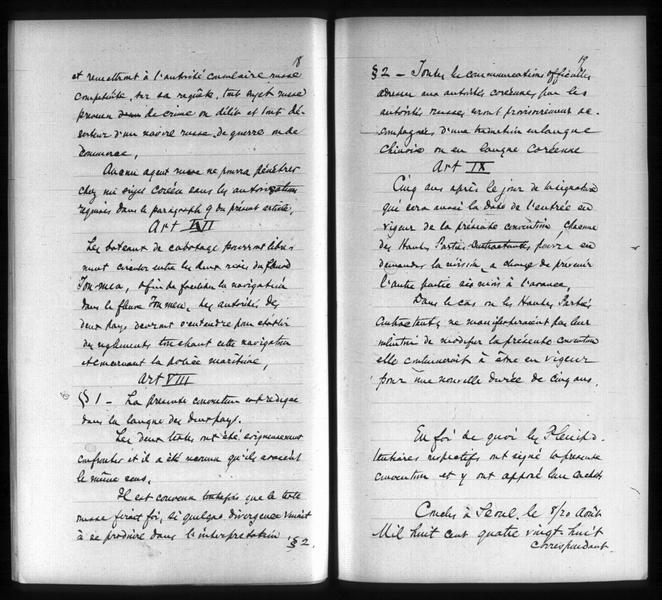 18
et remettront à l'autorité consulaire russe
compétente, sur sa requête, tout sujet russe
prévenu de crime ou délit et tout dé-
serteur d'un navire russe de guerre ou de
commerce,
Aucun agent russe ne pourra pénétrer
chez un sujet coréen sans les autorisation
requises dans le paragraph 9 du présent article,
Art VII
Les bateaux de cabotage pourront libre
ment circuler entre les deux rives du fleuve
Toumen, afin de faciliter la navigation
dans le fleuve Toumen, les autorités des
deux pays devront s'entendre pour établir
des reglements touchant cette navigation
et concernant la police maritime,
Art VIII
§ 1 - La présente convention est redigée
dans la langue des deux pays.
Les deux textes ont été soigneusement
confrontés et il a été reconnu qu'ils avaient
le même sens.
Il est convenu toutefois que le texte
russe ferait foi, si quelque divergence venait
à se produire dans l'interprétation.
§ 2.
19
§ 2 - Toutes les communications officielles
adressées aux autorités coréennes par les
autorités russes seront provisoirement ac-
compagnées d'une traduction en langue
chinoise ou en langue coréenne
Art IX
Cinq ans après le jour de la signature
qui sera aussi la date de l'entrée en
vigueur de la présente convention chacune
des Hautes Parties Contractantes pourra en
demander la révision, à charge de prévenir
l'autre partie six mois à l'avance,
Dans le cas où les Hautes Parties
Contractantes ne manifesteraient pas leur
intention de modifier la présente convention
elle continuerait à être en vigueur
pour une nouvelle durée de cinq ans.
En foi de quoi les Plénipo-
tentiaires respectifs ont signé la présente
convention et y ont apposé leur cachets
Conclu à Seoul, le 8/20 Août
Mil huit cent quatre vingt huit
correspondant